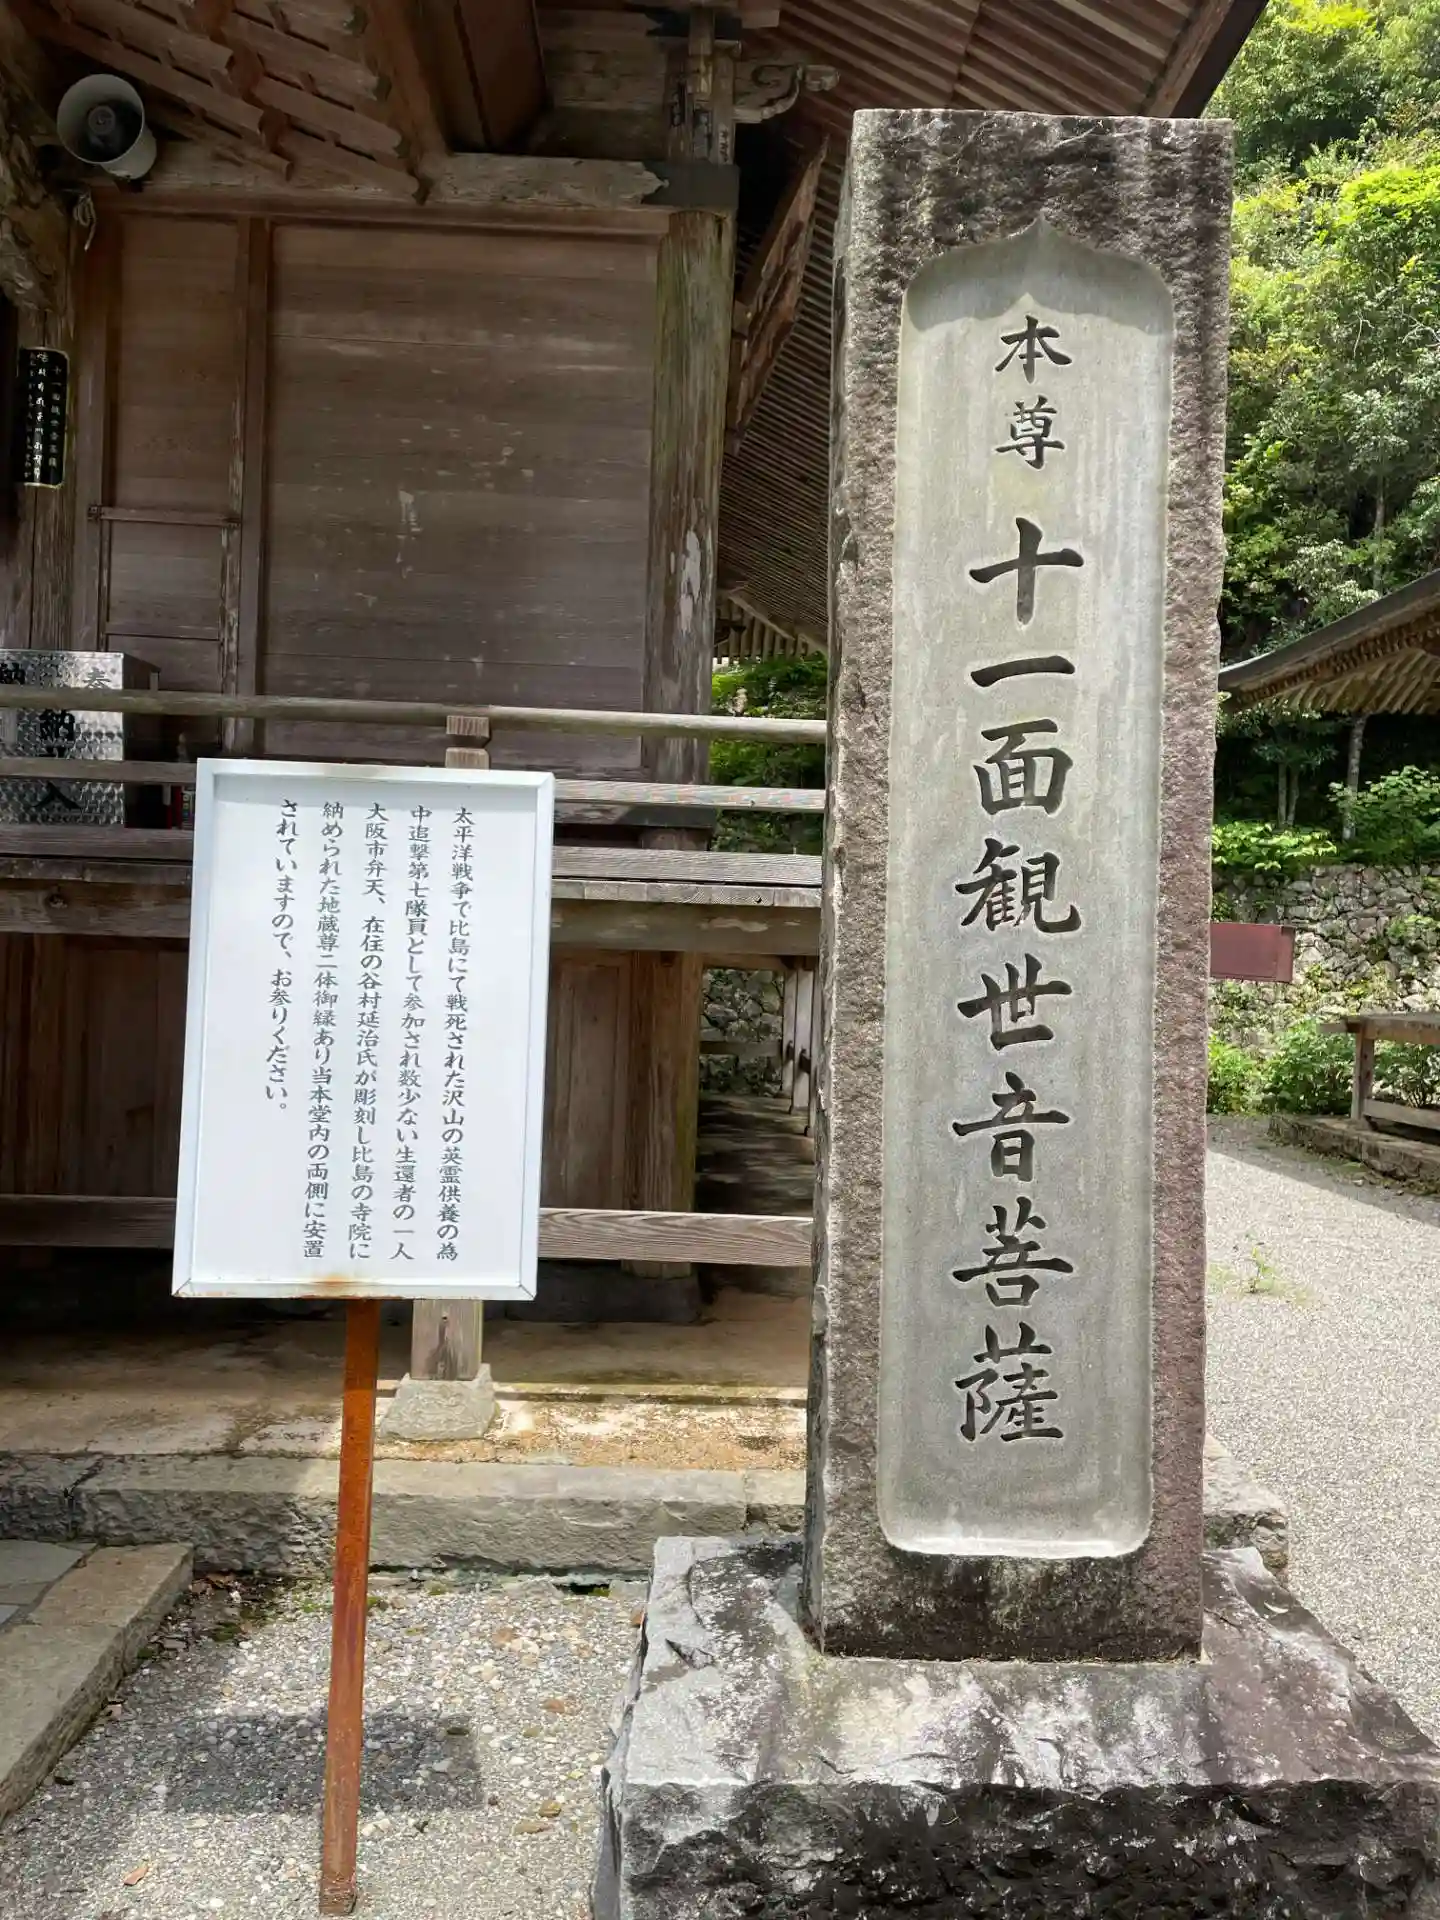 本尊 十一面観世音菩薩
太平洋戦争で比島にて戦死された沢山の英霊供養の為
中迫撃第七隊員として参加され数少ない生還者の一人
大阪市弁天、在住の谷村延治氏が彫刻し比島の寺院に
納められた地蔵尊二体御縁あり当本堂内の両側に安置
されていますので、お参りください。
奉納
納入
十一面観世音菩薩